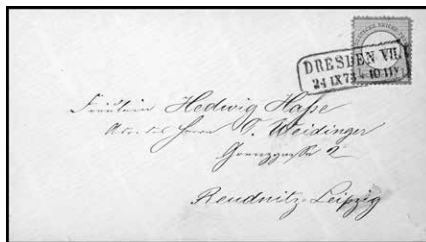 DEUTSCHE REICHS
DRESDEN VII.
24 IX 73 10-11V
Fräulein Hedwig Hasse
Adr. des Herrn O. Weidinger
Grenzgasse 2
Reudnitz-Leipzig